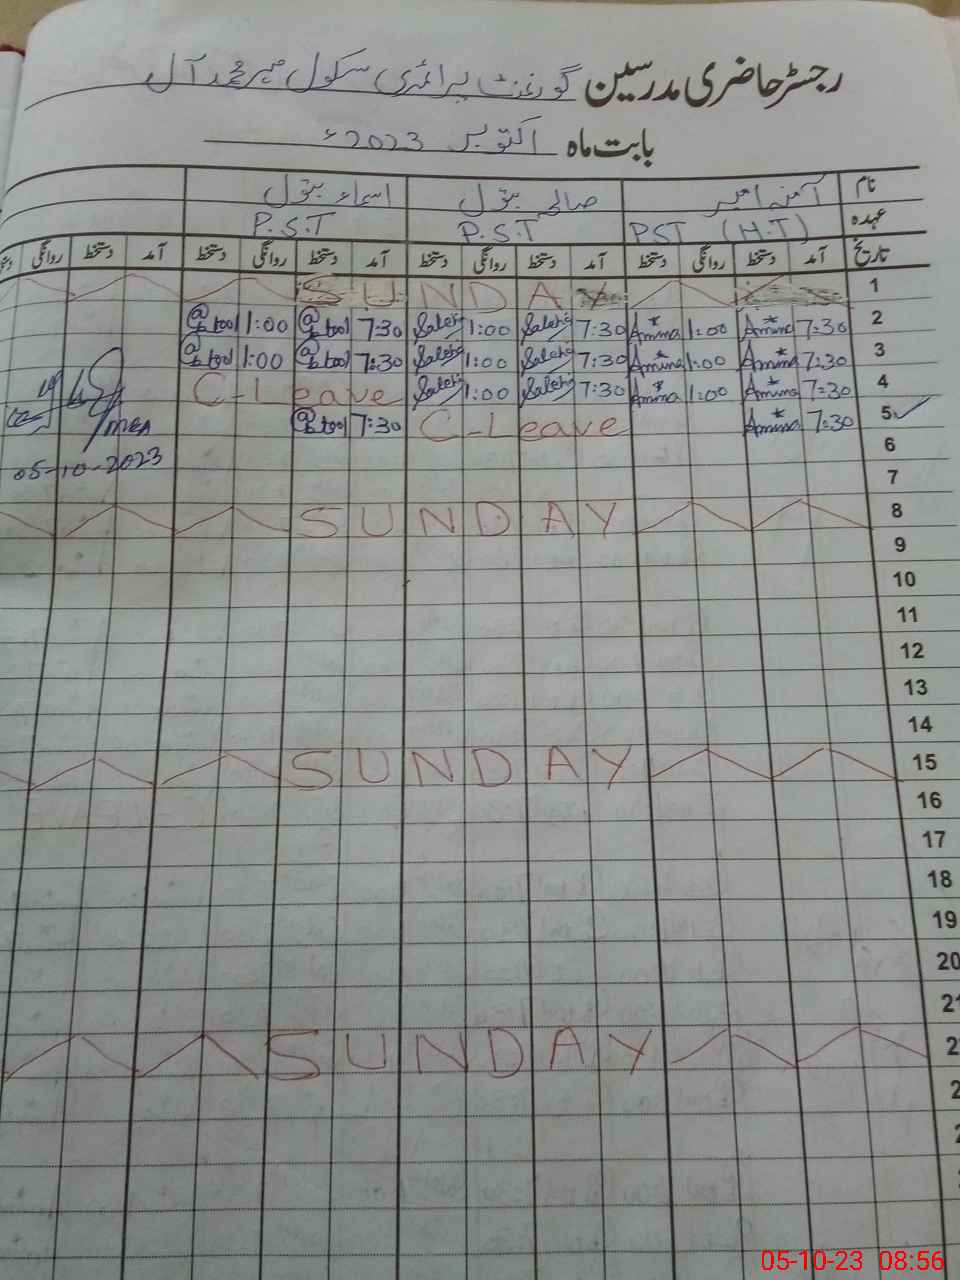 رجسٹر حاضری مدرسین گورنمنٹ پرائمری سکول میر محمد آل
بابت ماہ اکتوبر 2023ء
نام آمنہ امیر صالحہ بتول اسماء بتول
عہدہ PST (H.T) P.S.T P.S.T
تاریخ آمد دستخط روانگی دستخط آمد دستخط روانگی دستخط آمد دستخط روانگی دستخط آمد دستخط روانگی
1 SUNDAY
2 7:30 Amina 1:00 Amina 7:30 Saleha 1:00 Saleha 7:30 Btool 1:00 Btool
3 7:30 Amina 1:00 Amina 7:30 Saleha 1:00 Saleha 7:30 Btool 1:00 Btool
4 7:30 Amina 1:00 Amina 7:30 Saleha 1:00 Saleha C-Leave
5 7:30 Amina C-Leave 7:30 Btool
MEA
05-10-2023
6
7
8 SUNDAY
9
10
11
12
13
14
15 SUNDAY
16
17
18
19
20
21
2 SUNDAY
2
2
05-10-23 08:56